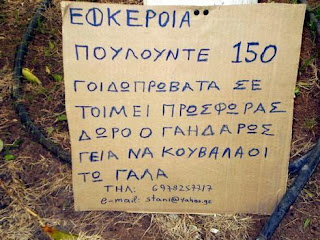 ΕΦΚΕΡΟΙΑ
ΠΟΥΛΟΥΝΤΕ 150
ΓΟΙΔΩΠΡΩΒΑΤΑ ΣΕ
ΤΟΙΜΕΙ ΠΡΟΣΦΩΡΑΣ
ΔΩΡΟ Ο ΓΑΗΔΑΡΩΣ
ΓΕΙΑ ΝΑ ΚΟΥΒΑΛΑΟΙ
ΤΩ ΓΑΛΑ
ΤΗΛ: 6978257717
e-mail: stani@yahoo.gr